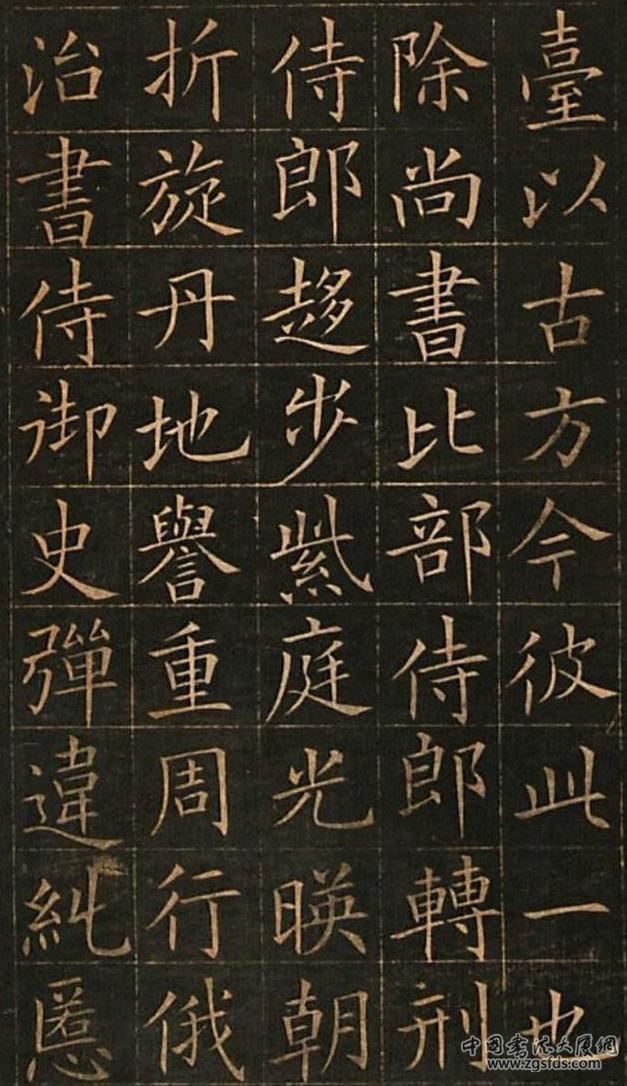 臺以古方今彼此一也
除尚書比部侍郎轉刑
侍郎趍步紫庭光暎朝
折旋丹地譽重周行俄
治書侍御史彈違糾慝
中国书法大展網
www.zgsfds.com